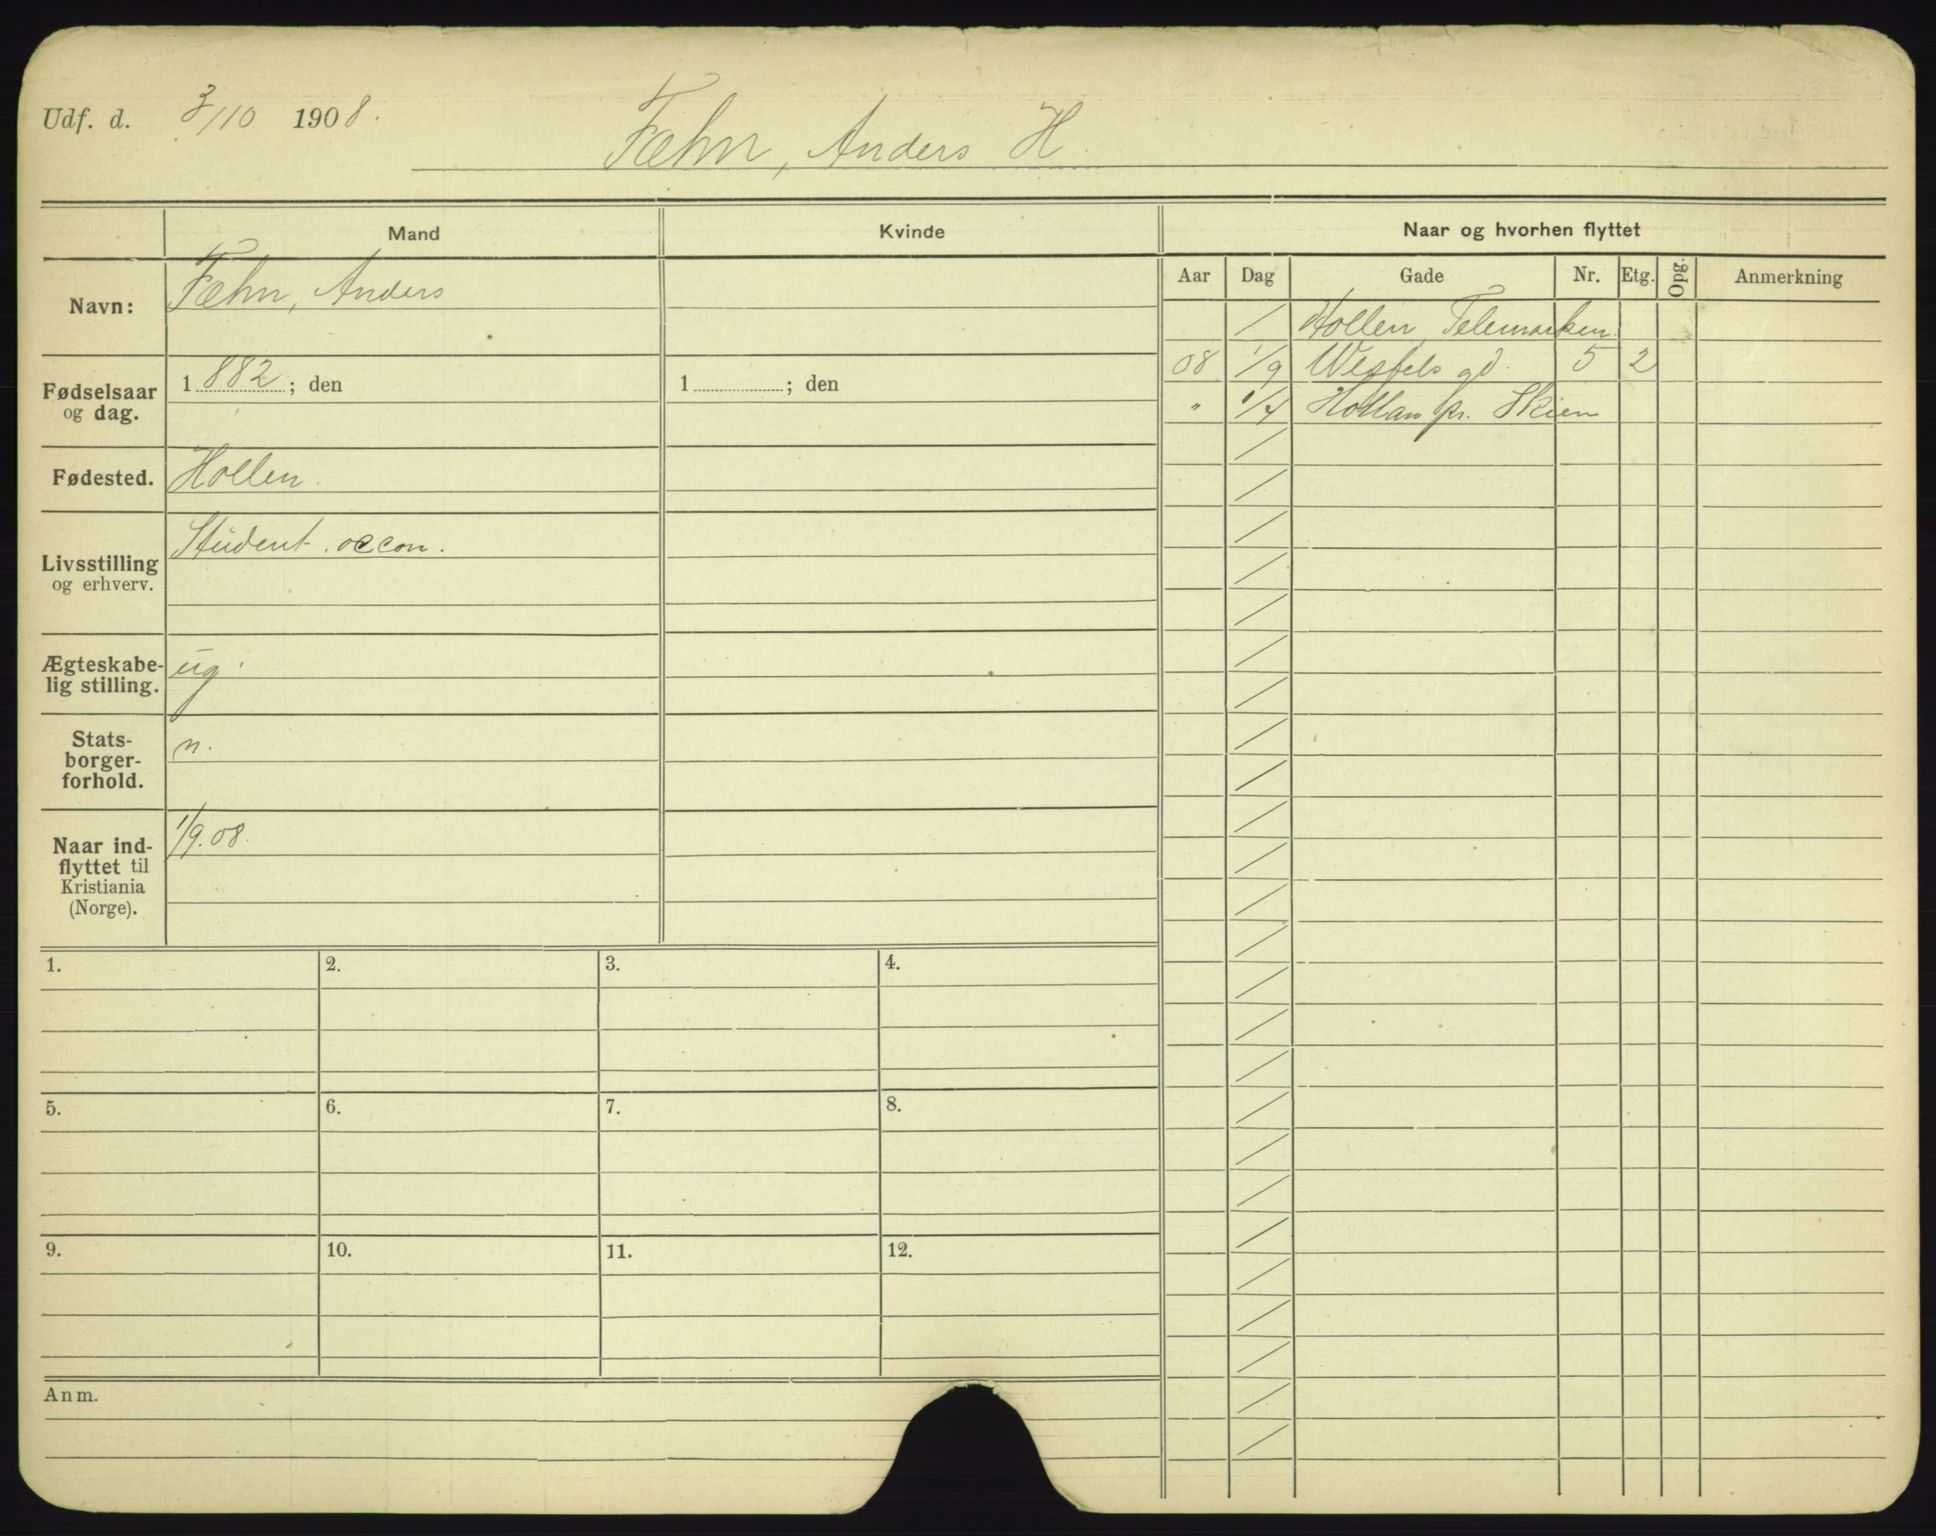 Udf. d. 3/10 1908.
Fæhn, Anders H.
Mand
Kvinde
Navn:
Fæhn, Anders
Fødselsaar og dag.
1882; den
1 ; den
Fødested.
Hollen.
Livsstilling og erhverv.
Student. occon.
Ægteskabe-
lig stilling.
ug.
Stats-
borger-
forhold.
n.
Naar ind-
flyttet til
Kristiania
(Norge).
1/9.08.
1. 2. 3. 4.
5. 6. 7. 8.
9. 10. 11. 12.
Anm.
Naar og hvorhen flyttet
Aar Dag Gade Nr. Etg. Opg. Anmerkning
/ Hollen, Telemarken.
08 1/9 Wessels gd. 5 2
" Hollan pr. Skien